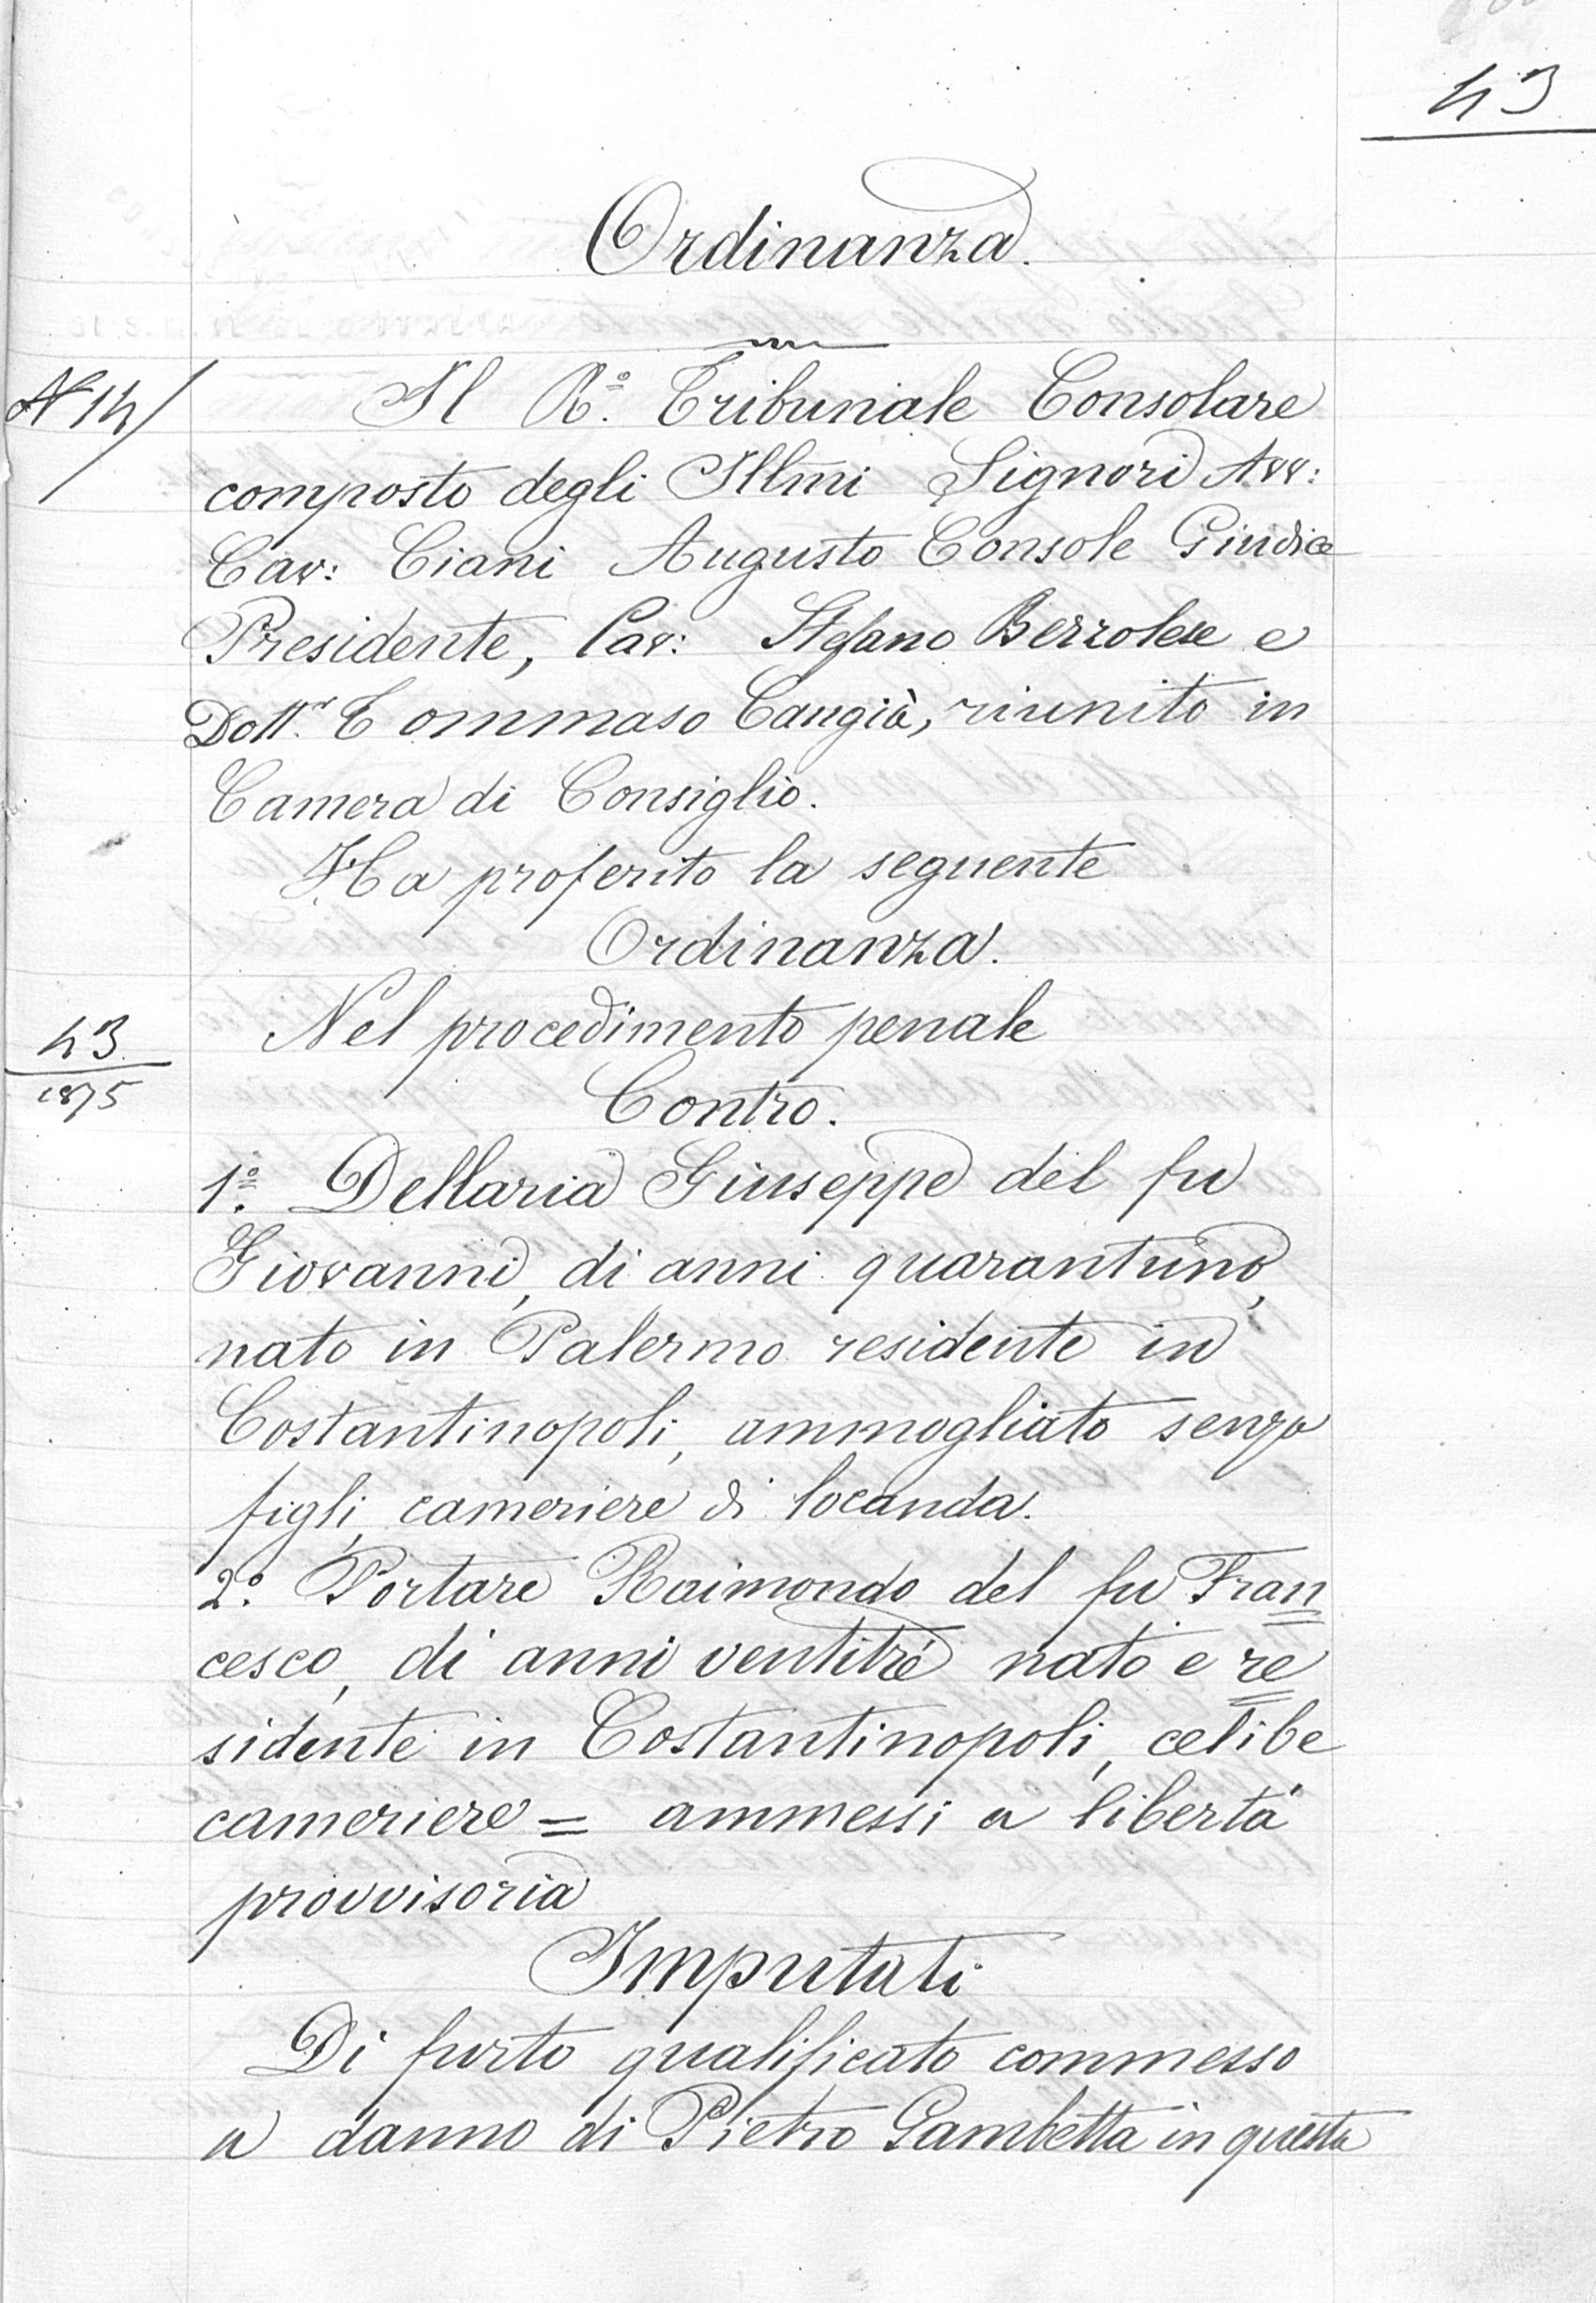 43
Ordinanza.
N 14/
Il R.º Tribunale Consolare
composto degli Illmi Signori Avv:
Cav: Ciani Augusto Console Giudice
Presidente, Cav: Stefano Berzolese e
Dott.r Tommaso Cangià, riunito in
Camera di Consiglio.
Ha proferito la seguente
Ordinanza.
Nel procedimento penale
43
1875
Contro.
1.º Dellaria Giuseppe del fu
Giovanni, di anni quarantuno,
nato in Palermo residente in
Costantinopoli, ammogliato senza
figli, cameriere di locanda.
2.º Portare Raimondo del fu Fran=
cesco, di anni ventitré nato e re=
sidente in Costantinopoli, celibe
cameriere = ammessi a libertà
provvisoria
Imputati
Di furto qualificato commesso
a danno di Pietro Gambetta in questa